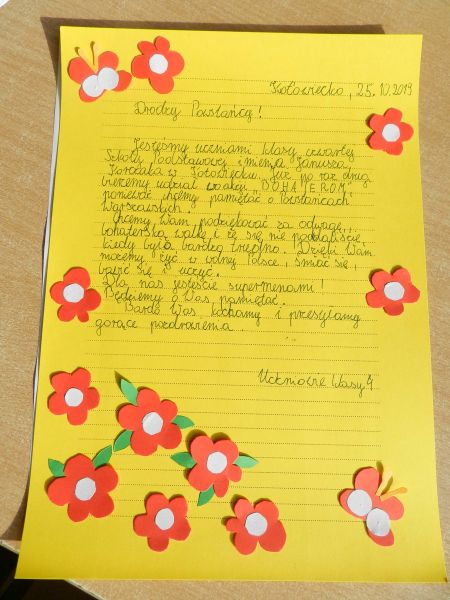 Kołowiecko, 25.10.2019
Drodzy Powstańcy!
Jesteśmy uczniami klasy czwartej
Szkoły Podstawowej imienia Janusza
Korczaka w . Już po raz drugi
bierzemy udział w akcji "BOHATEROM"
ponieważ chcemy pamiętać o Powstańcach
Warszawskich.
Chcemy Wam podziękować za odwagę,
bohaterską walkę i że się nie poddaliście,
kiedy było bardzo trudno. Dzięki Wam
możemy żyć w wolnej Polsce, śmiać się,
bawić się i uczyć.
Dla nas jesteście supermenami!
Będziemy o Was pamiętać.
Bardo Was kochamy i przesyłamy
gorące pozdrowienia.
Uczniowie klasy 4